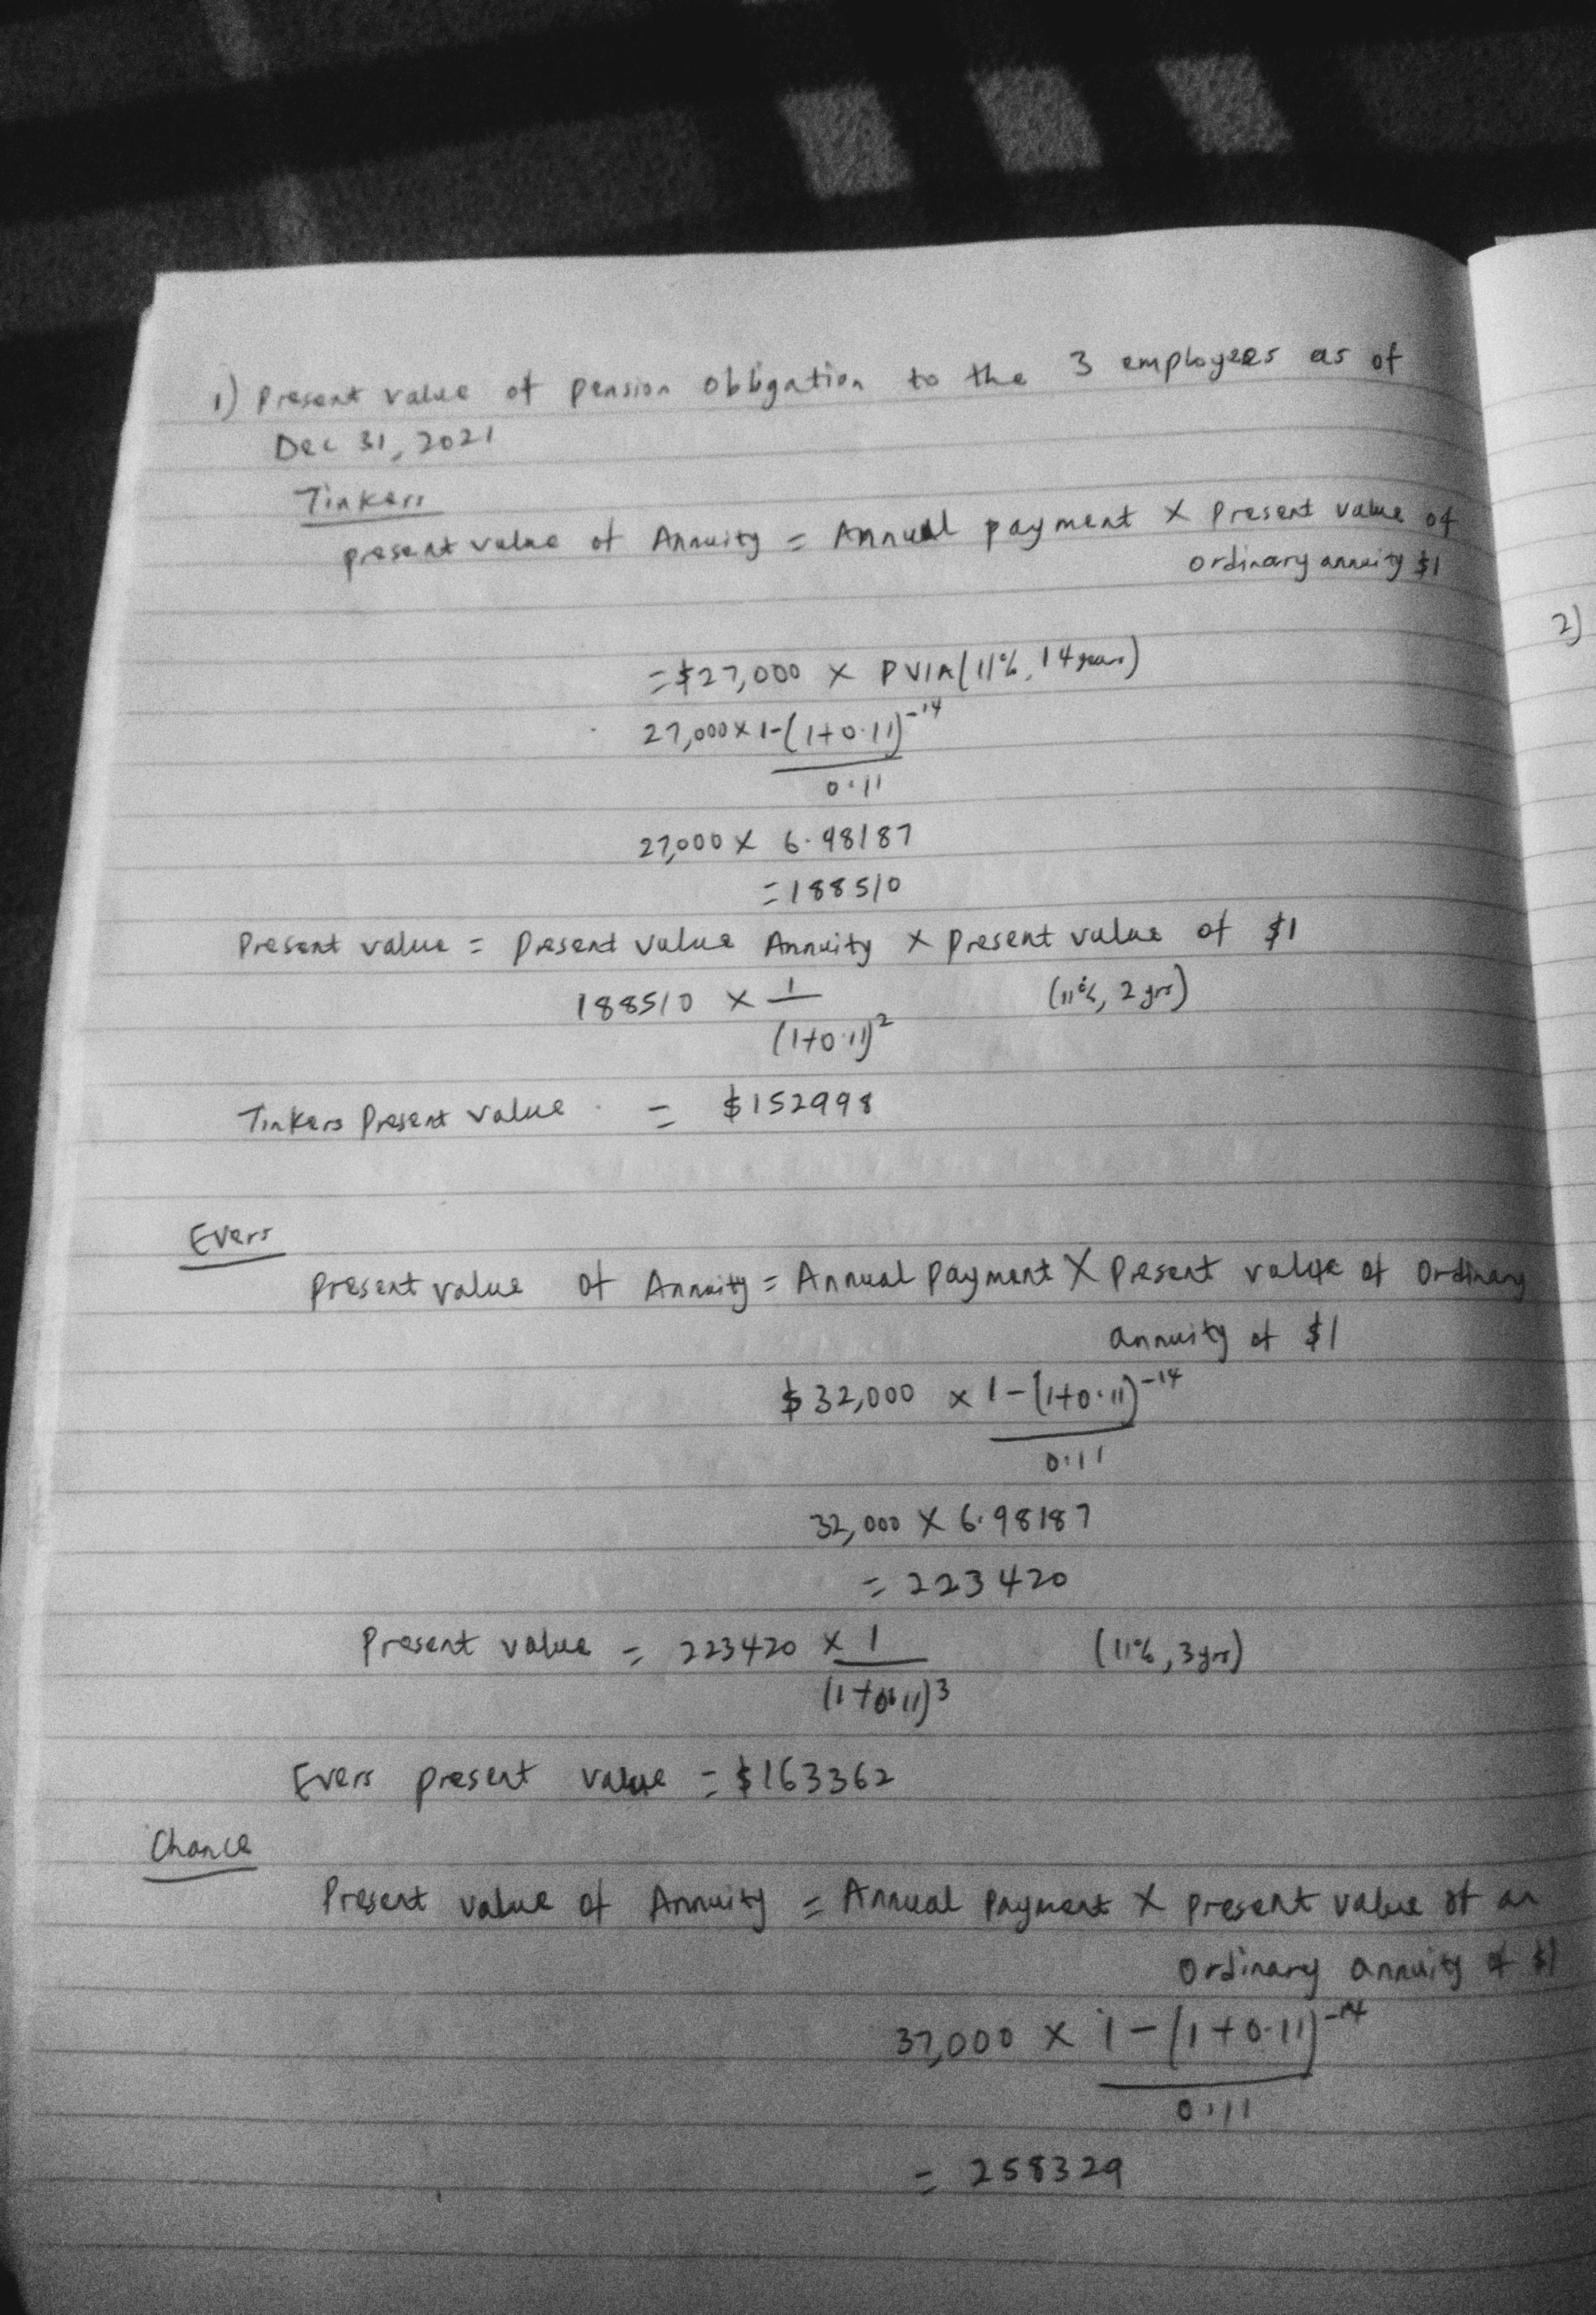 1) Present value of pension obligation to the 3 employees as of
Dec 31, 2021
Tinkers
present value of Annuity = Annual payment X Present value of
ordinary annuity $1
= $27,000 X PVIA (11%, 14 years)
27,000 X 1-(1+0.11)^-14
0.11
27,000 X 6.98187
= 188510
Present value = Present value Annuity X Present value of $1
188510 X 1 (11%, 2 yrs)
(1+0.11)^2
Tinkers Present value = $152998
Evers
Present value of Annuity = Annual Payment X Present value of Ordinary
annuity of $1
$32,000 x 1-(1+0.11)^-14
0.11
32,000 X 6.98187
= 223420
Present value = 223420 X 1 (11%, 3yrs)
(1+0.11)^3
Evers present value = $163362
Chance
Present value of Annuity = Annual Payment X present value of an
Ordinary annuity of $1
37,000 X 1-(1+0.11)^-14
0.11
= 258329
2)